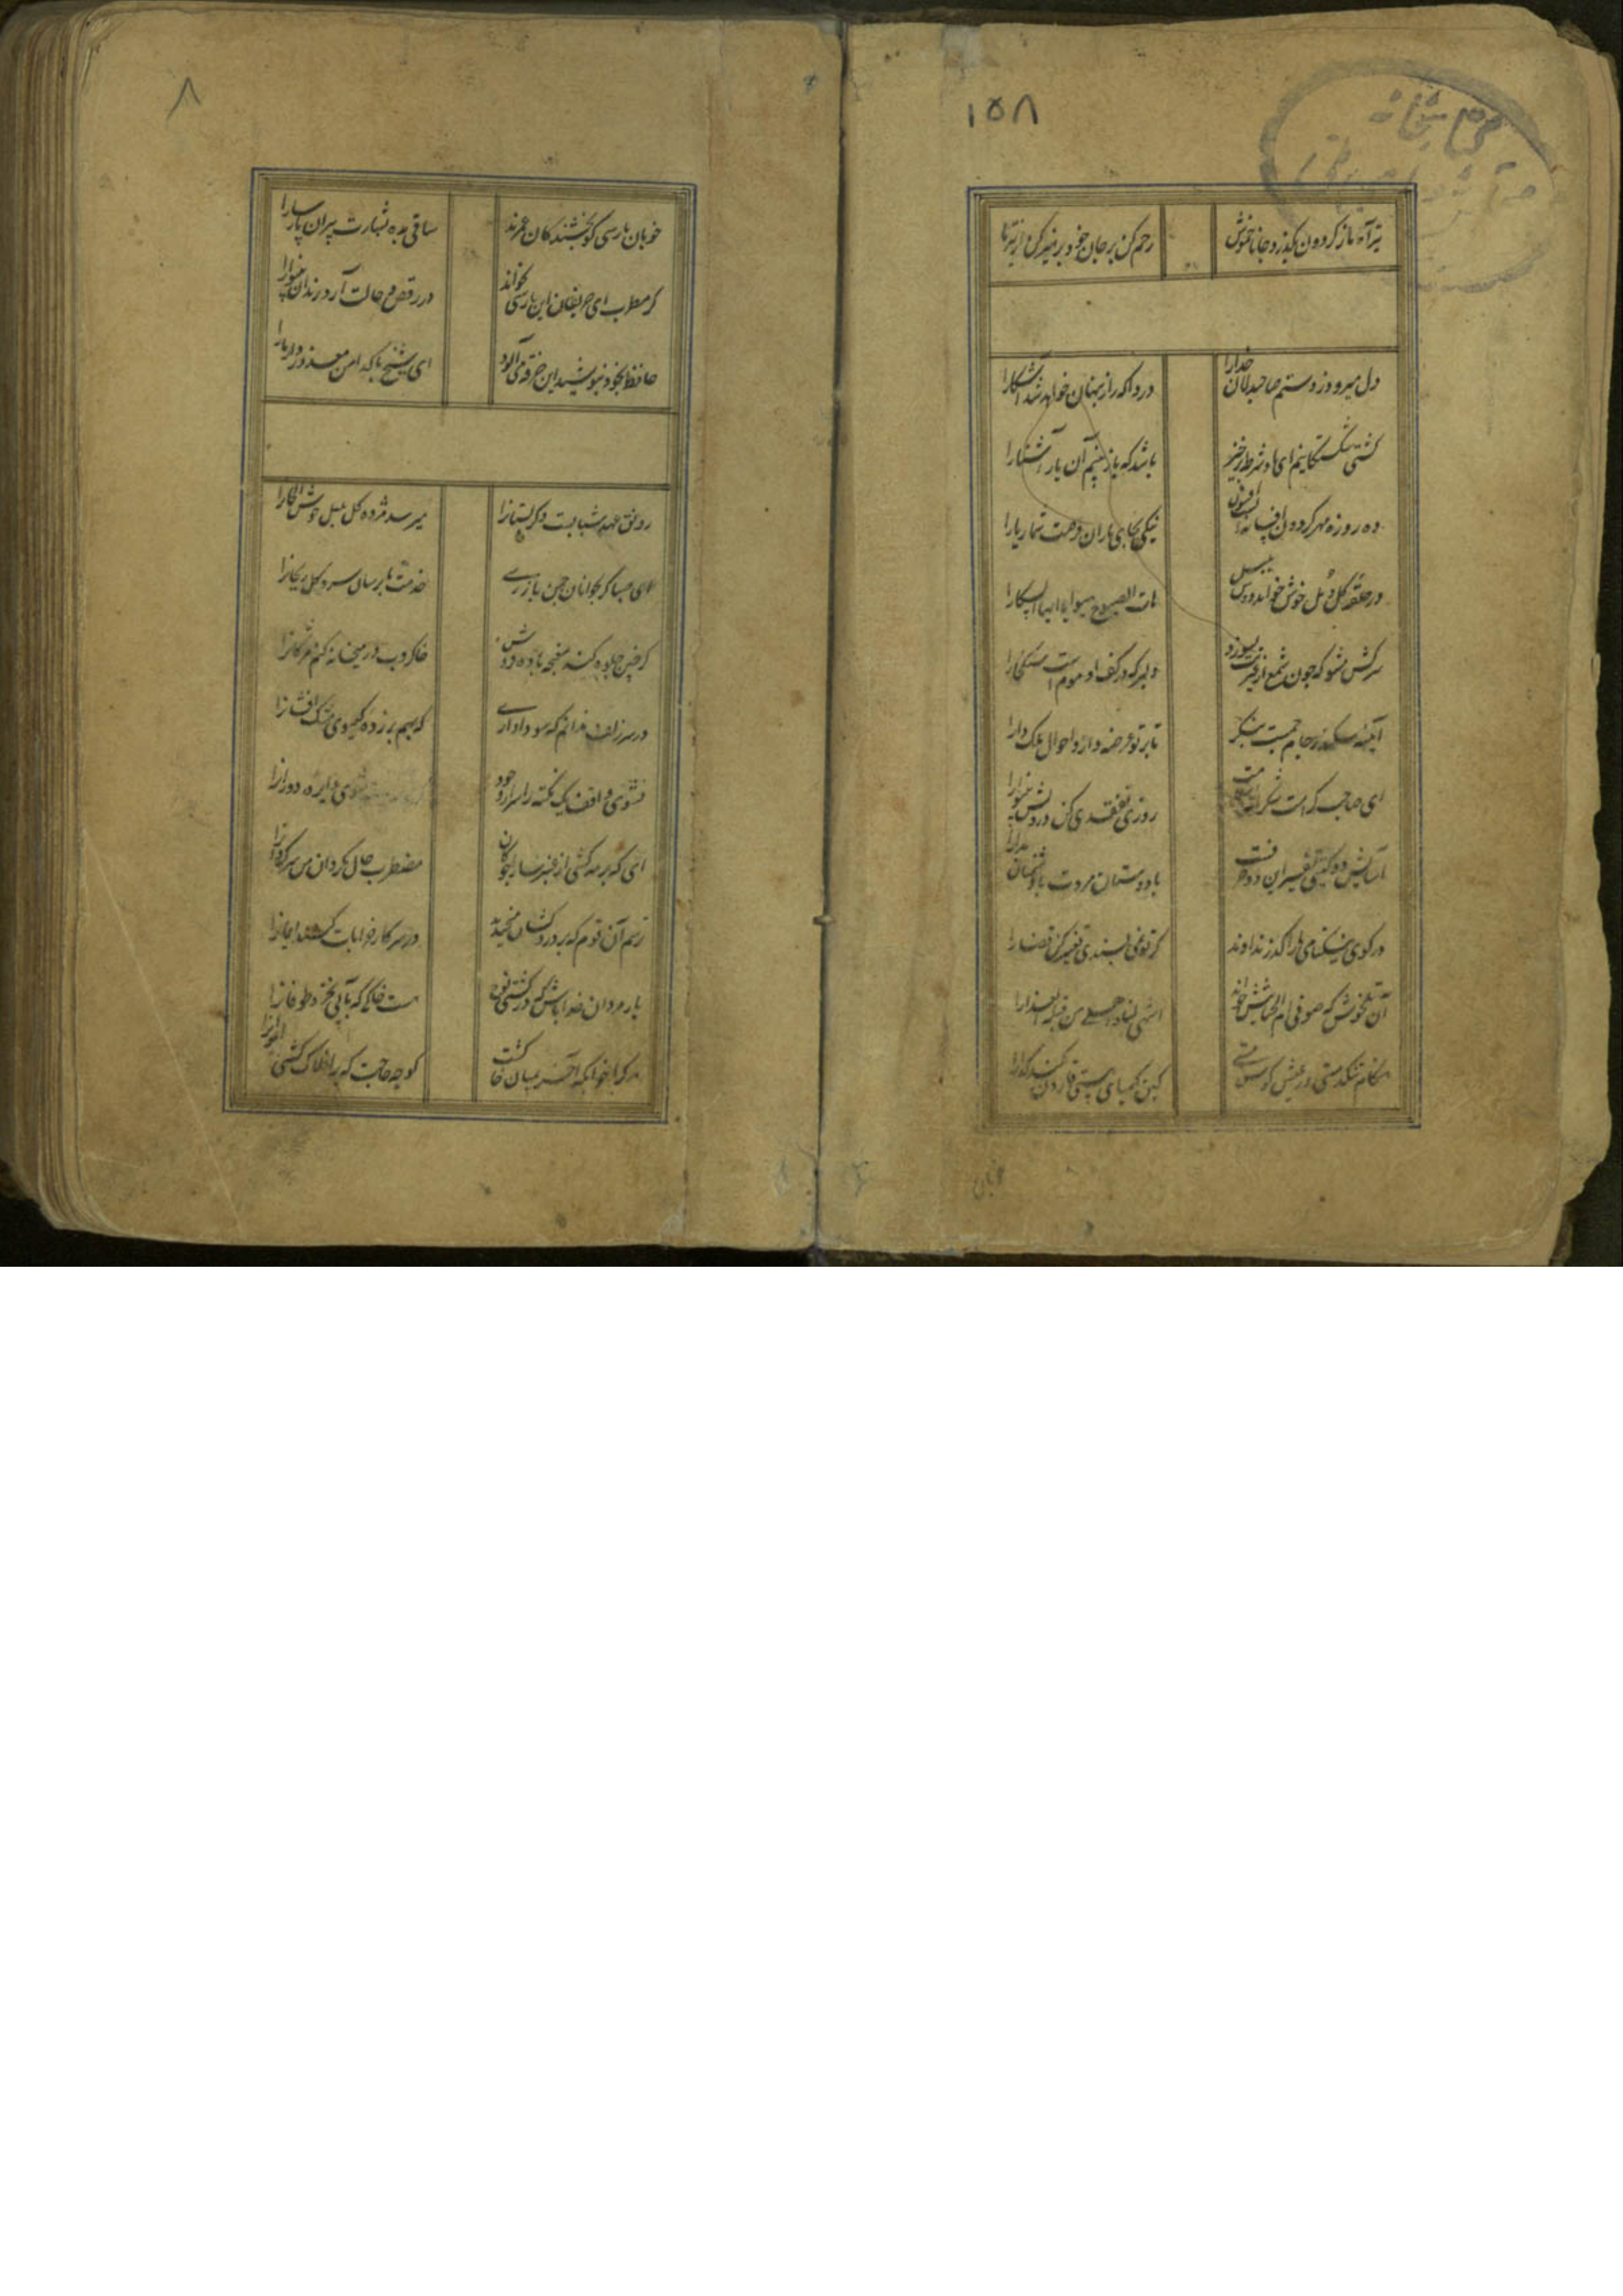 ١٥٨
تیر آه ما ز کردون بگذرد جانا خموش
رحم کن بر جان خود پرهیز کن از تیر ما
دل میرود ز دستم صاحبدلان خدارا
دردا که راز پنهان خواهد شد آشکارا
کشتی شکستگانیم ای باد شرطه برخیز
باشد که باز بینیم آن یار آشنارا
ده روزه مهر کردون افسانه است افسون
نیکی بجای یاران فرصت شمار یارا
در حلقه کل و مل خوش خواند دوش بلبل
هات الصبوح هبوا یا ایها السکارا
سرکش مشو که چون شمع از غیرتت بسوزد
دلبر که در کف او موم است سنک خارا
آیینه سکندر جام جمست بنکر
تا بر تو عرضه دارد احوال ملک دارا
ای صاحب کرامت شکرانه سلامت
روزی تفقدی کن درویش بینوارا
آسایش دو کیتی تفسیر این دو حرفست
با دوستان مروت با دشمنان مدارا
در کوی نیکنامی مارا کذر ندادند
کر تو نمی پسندی تغییر کن قضارا
آن تلخوش که صوفی ام الخبایثش خواند
اشهی لنا و احلی من قبلة العذارا
هنکام تنکدستی در عیش کوش و مستی
کین کیمیای هستی قارون کند کدارا
خوبان
٨
خوبان پارسی کو بخشندکان عمرند
ساقی بده بشارت پیران پارسارا
کر مطرب ای حریفان این پارسی بخواند
در رقص و حالت آرد رندان بینوارا
حافظ بخود نپوشید این خرقه می آلود
ای شیخ پاکدامن معذور دار مارا
رونق عهد شبابست دکر بستانرا
میرسد مژده کل بلبل خوش الحانرا
ای صبا کر بجوانان چمن بازرسی
خدمت ما برسان سرو و کل و ریحانرا
کر چنین جلوه کند مغبچه باده فروش
خاکروب در میخانه کنم مژکانرا
در سر زلف ندانم که چه سودا داری
که بهم بر زده کیسوی مشک افشانرا
نشوی واقف یک نکته ز اسرار وجود
شوی دایره دورانرا
ای که بر مه کشی از عنبر سارا چوکان
مضطرب حال مکردان من سرکردانرا
ترسم آن قوم که بر دردکشان میخندند
در سر کار خرابات کنند ایمانرا
یار مردان خدا باش که در کشتی نوح
هست خاکی که بآبی نخرد طوفانرا
هر کرا خوابکه آخر بمیان خاکست
کو چه حاجت که بر افلاک کشی ایوانرا